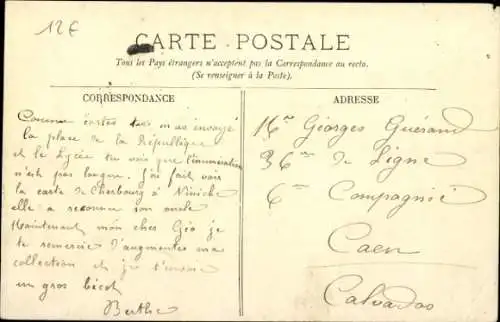 12€
CARTE POSTALE
Tous les Pays étrangers n'acceptent pas la Correspondance au recto.
(Se renseigner à la Poste).
CORRESPONDANCE
Comme cartes tu m'as envoyé
la place de la République
et le Lycée tu vois que l'énumération
n'est pas longue. J'ai fait voir
la carte de Cherbourg à Niniche
elle a reconnu son oncle
Maintenant mon cher Géo je
te remercie d'augmenter ma
collection et je t'envoie
un gros bécot
Berthe
ADRESSE
Mr Georges Guérand
36me de Ligne
6me Compagnie
Caen
Calvados